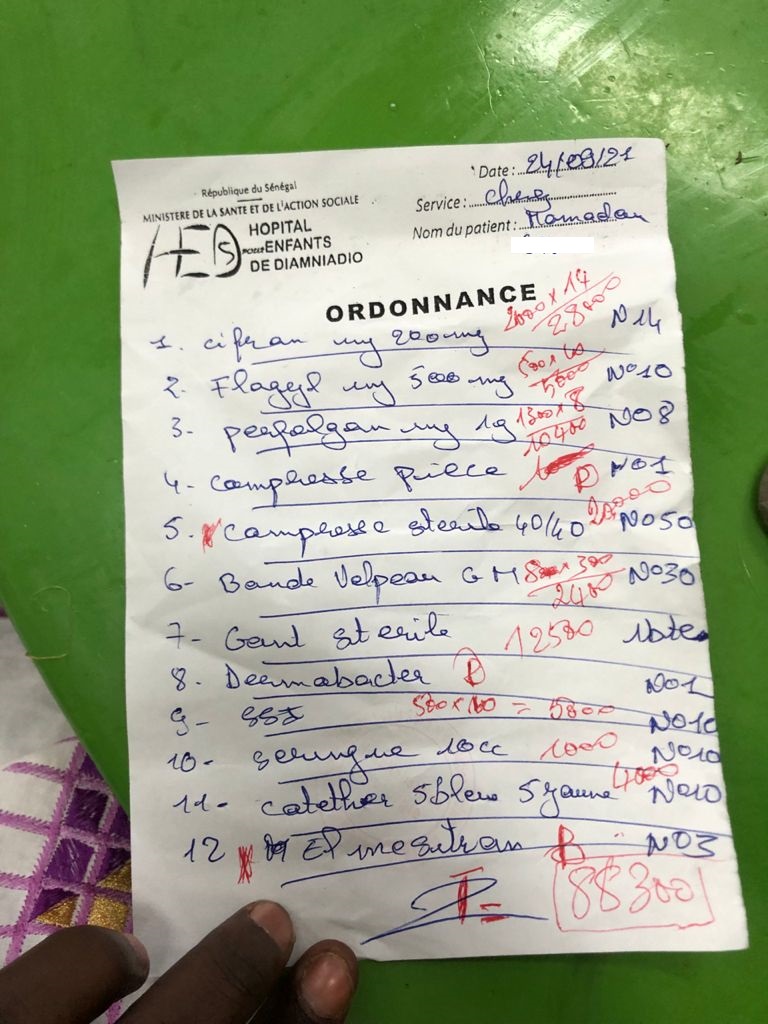 République du Sénégal
MINISTERE DE LA SANTE ET DE L'ACTION SOCIALE
HED
S
HOPITAL
pour ENFANTS
DE DIAMNIADIO
Date : 24/09/21
Service :
Nom du patient : Mamadou
ORDONNANCE
1. cifran inj 200mg 2000 x 14 28000 N°14
2. Flagyl inj 500 mg 500 x 10 5000 N°10
3. perfalgan inj 1g 1300 x 8 10400 N°8
4. compresse piece N°1
5. compresse sterile 40/40 20000 N°50
6- Bande Velpeau GM 300 2400 N°30
7- Gant sterile 12500 1boite
8. Dermobacter N°1
9- SSI 500 x 10 = 5000 N°10
10- seringue 10cc 1000 N°10
11- catether 5bleu 5jaune 4000 N°10
12 N°3
88300